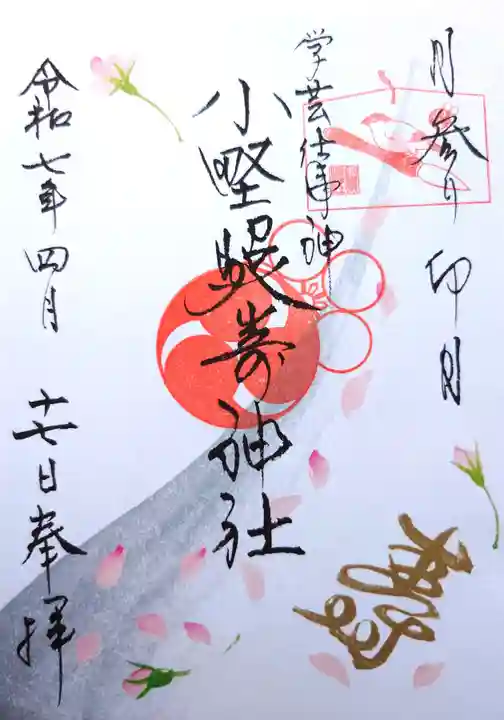 月参り 卯月
学芸仕事神
小野照嵜神社
令和七年四月 十七日奉拝